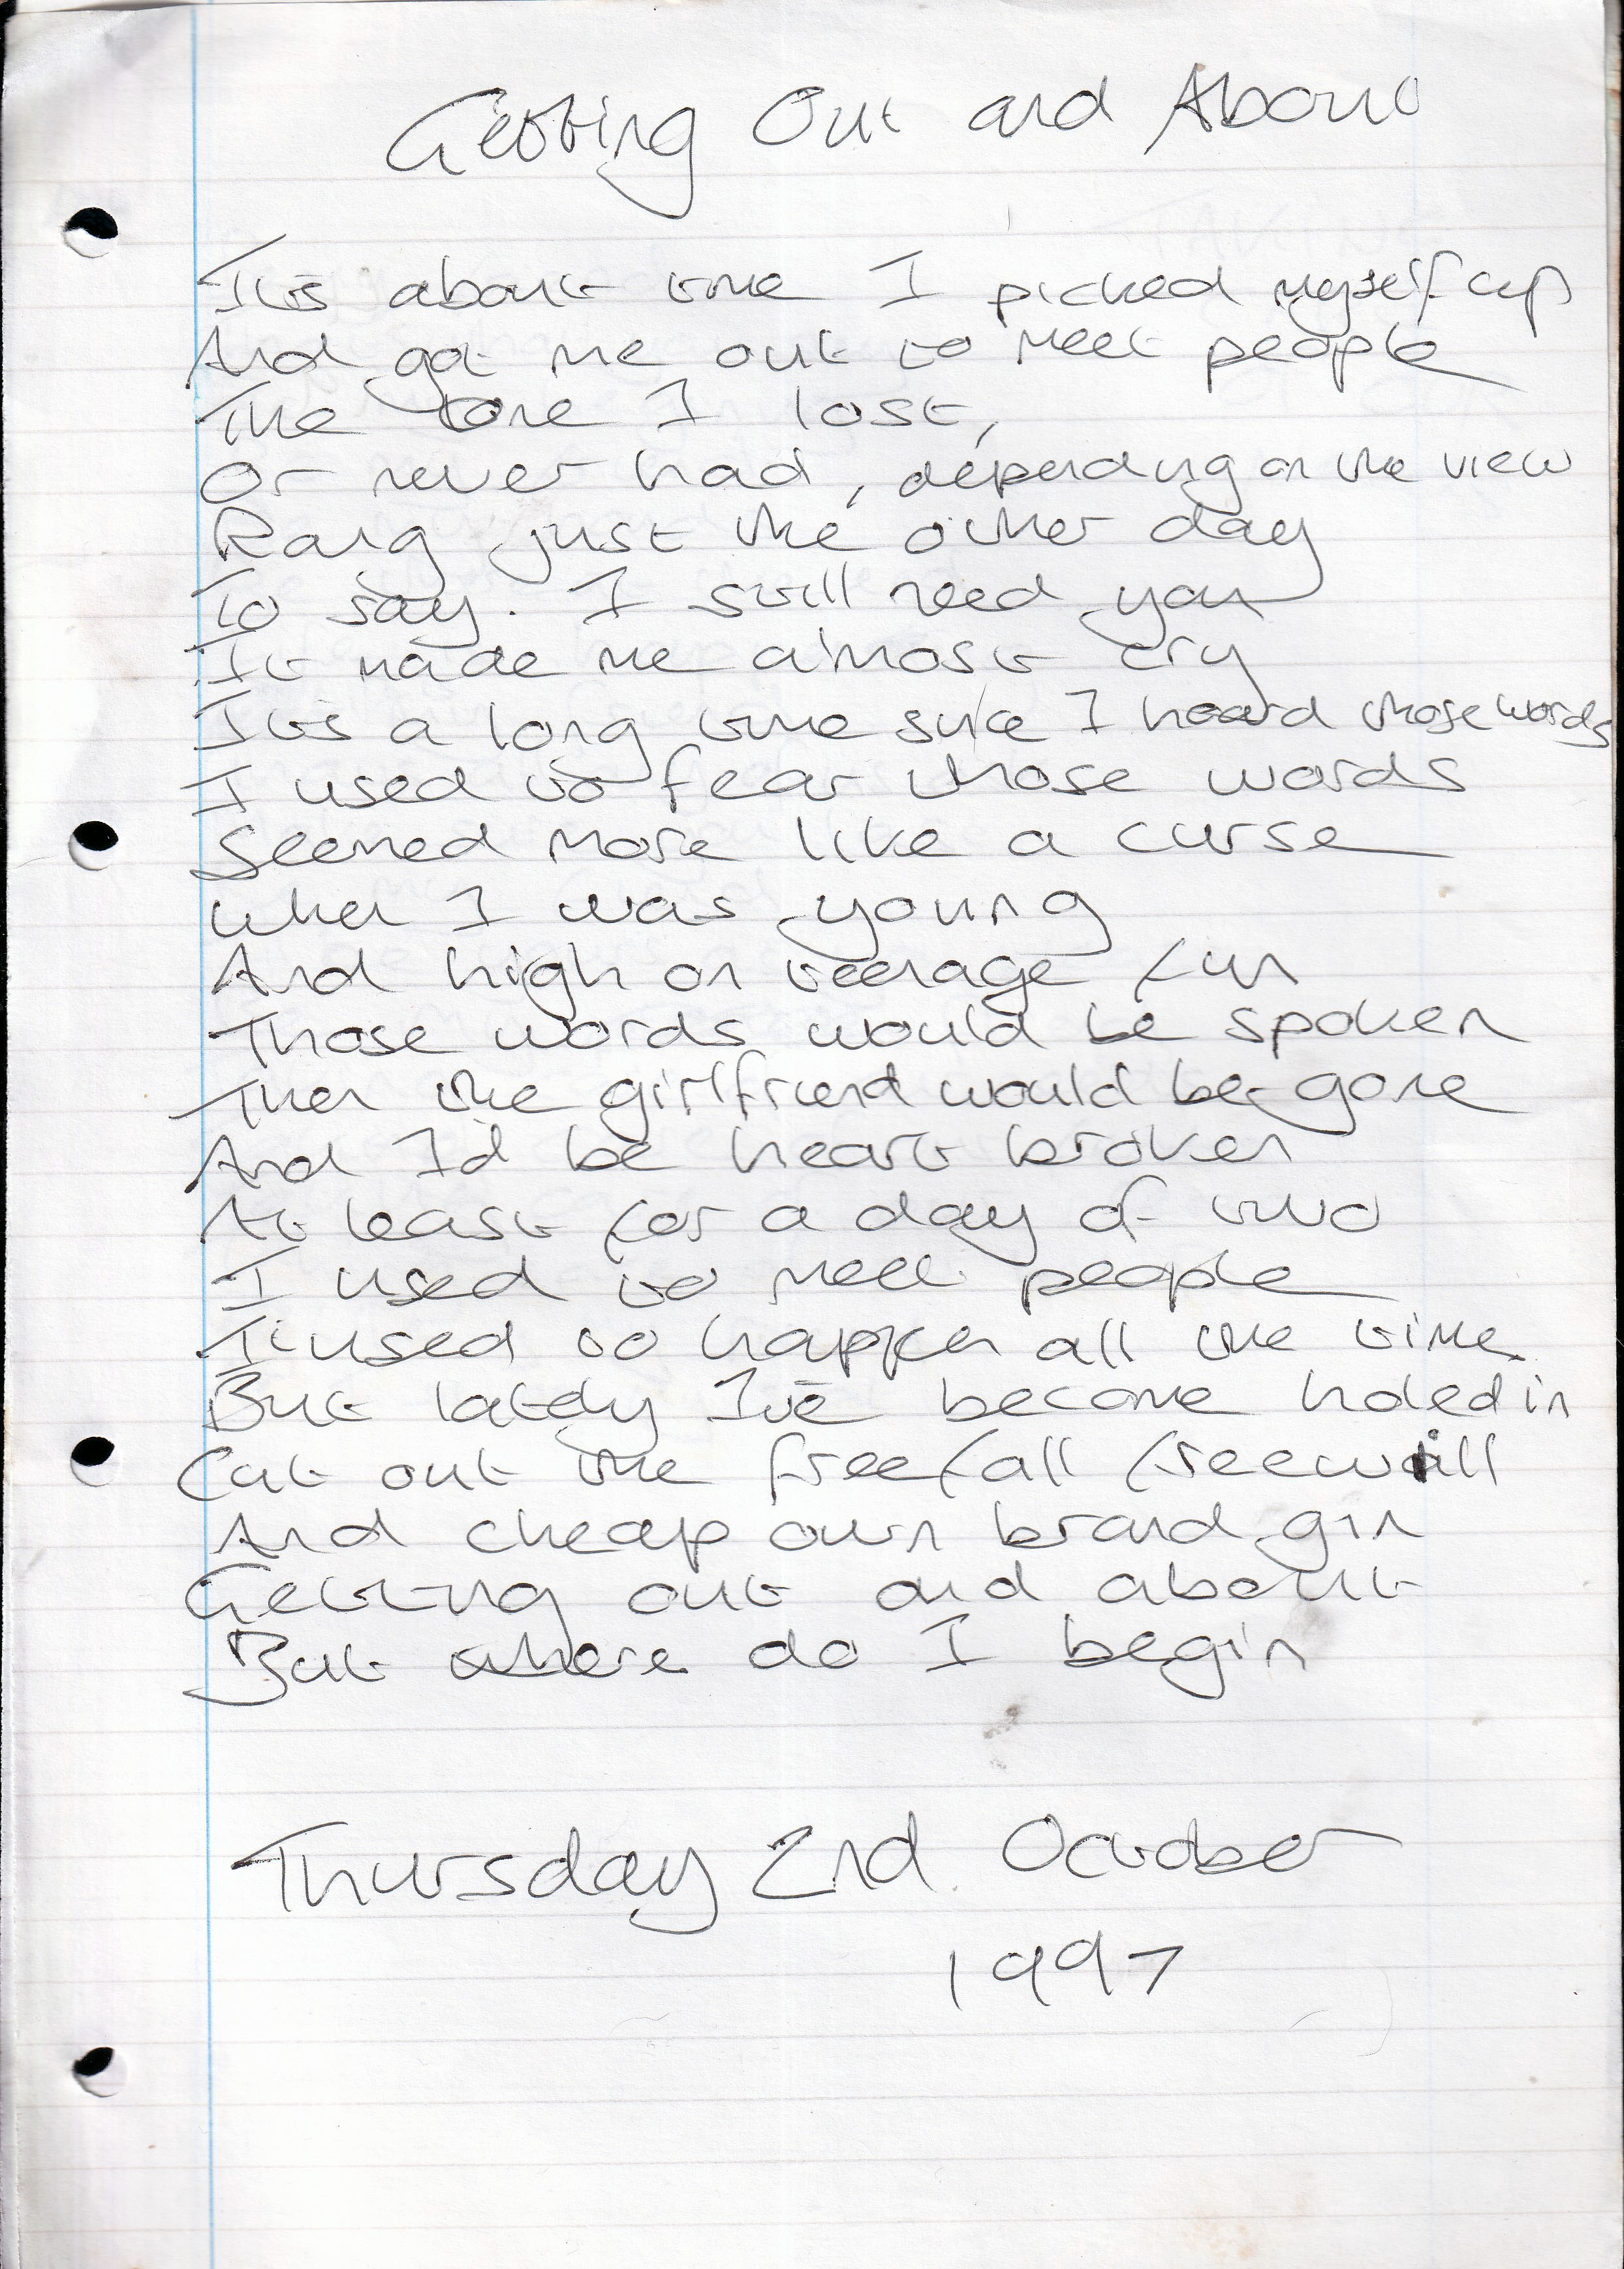 Getting Out and About
Its about time I picked myself up
And got me out to meet people
The love I lost,
Or never had, depending on the view
Rang just the other day
To say. I still need you
It made me almost cry
Its a long time since I heard those words
I used to fear those words
Seemed more like a curse
When I was young
And high on teenage fun
Those words would be spoken
Then the girlfriend would be gone
And I'd be heart broken
At least for a day of two
I used to meet people
It used to happen all the time
But lately I've become holed in
Cut out the freefall freewill
And cheap own brand gin
Getting out and about
But where do I begin
Thursday 2nd October
1997